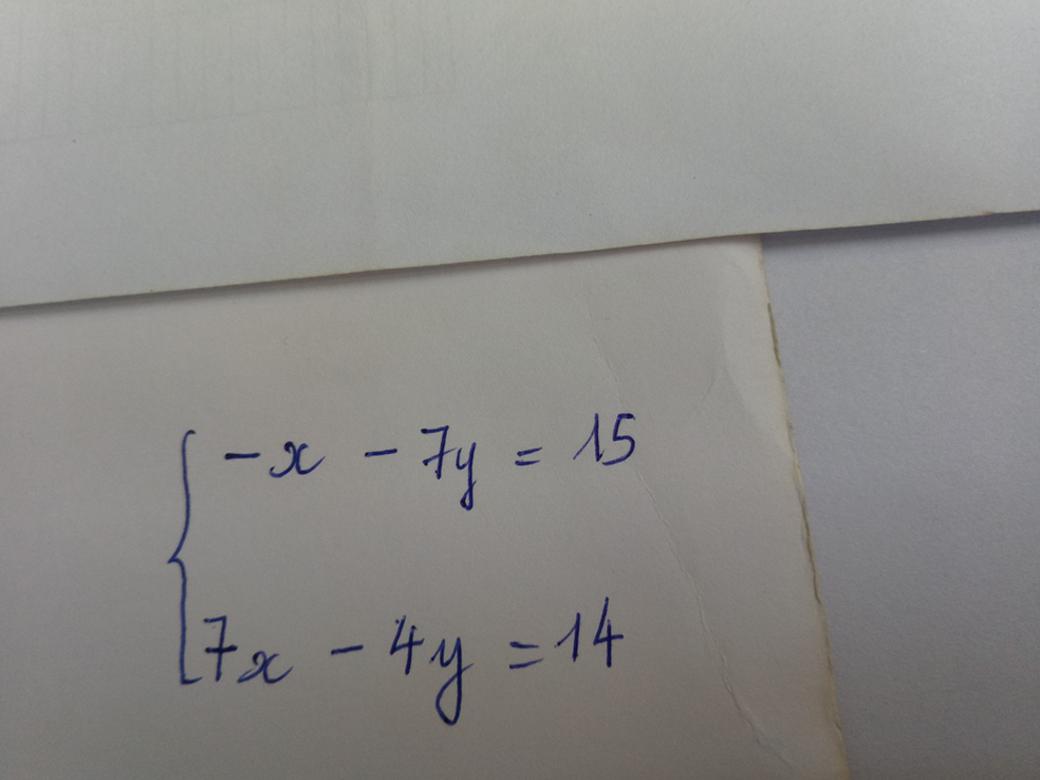 -x - 7y = 15
7x - 4y = 14